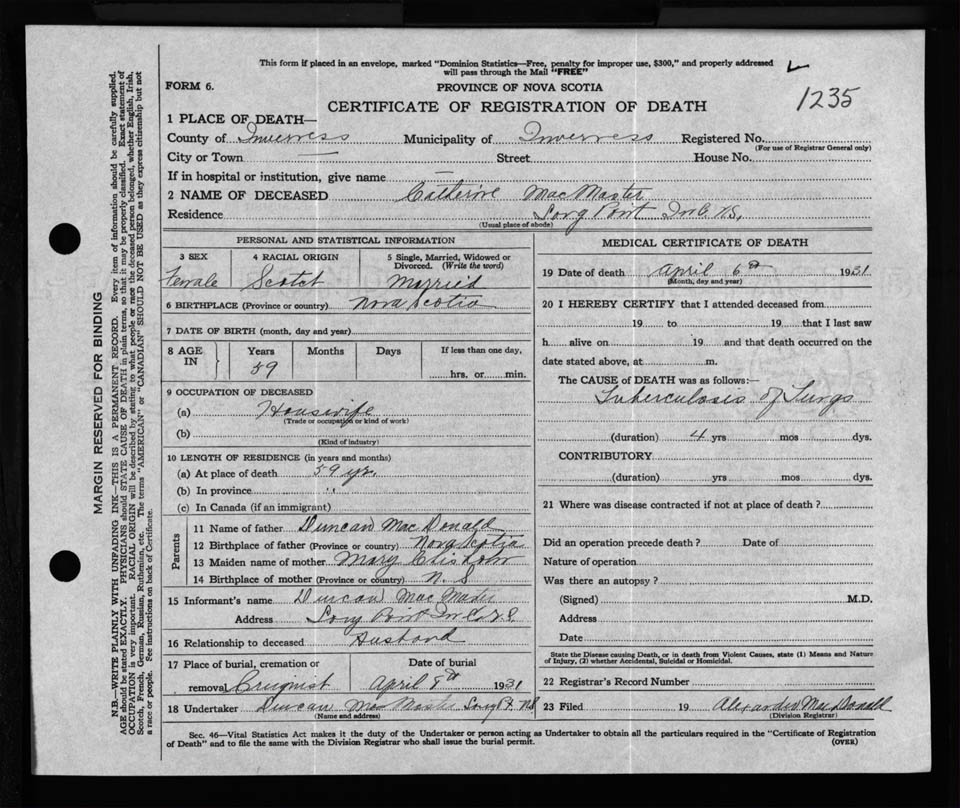 This form if placed in an envelope, marked "Dominion Statistics—Free, penalty for improper use, $300," and properly addressed
will pass through the Mail "FREE"
FORM 6.
PROVINCE OF NOVA SCOTIA
1235
CERTIFICATE OF REGISTRATION OF DEATH
1 PLACE OF DEATH—
County of Inverness Municipality of Inverness Registered No.
(For use of Registrar General only)
City or Town — Street House No.
If in hospital or institution, give name —
2 NAME OF DECEASED Catherine MacMaster
Residence Long Point N.S.
(Usual place of abode)
PERSONAL AND STATISTICAL INFORMATION
3 SEX 4 RACIAL ORIGIN 5 Single, Married, Widowed or
Divorced. (Write the word)
Female Scotch Married
6 BIRTHPLACE (Province or country) Nova Scotia
7 DATE OF BIRTH (month, day and year)
8 AGE IN Years Months Days If less than one day,
59 hrs. or min.
9 OCCUPATION OF DECEASED
(a) Housewife
(Trade or occupation or kind of work)
(b)
(Kind of industry)
10 LENGTH OF RESIDENCE (in years and months)
(a) At place of death 59 yr.
(b) In province "
(c) In Canada (if an immigrant)
Parents
11 Name of father Duncan MacDonald
12 Birthplace of father (Province or country) Nova Scotia
13 Maiden name of mother Mary
14 Birthplace of mother (Province or country) N. S
15 Informant's name Duncan MacMaster
Address Long Point
16 Relationship to deceased Husband
17 Place of burial, cremation or Date of burial
removal April 8th 1931
18 Undertaker Duncan MacMaster Long Pt. N.S
(Name and address)
MEDICAL CERTIFICATE OF DEATH
19 Date of death April 6th 1931
(Month, day and year)
20 I HEREBY CERTIFY that I attended deceased from
19 to 19 that I last saw
h alive on 19 and that death occurred on the
date stated above, at m.
The CAUSE of DEATH was as follows:—
Tuberculosis of Lungs
(duration) 4 yrs mos dys.
CONTRIBUTORY
(duration) yrs mos dys.
21 Where was disease contracted if not at place of death?
Did an operation precede death? Date of
Nature of operation
Was there an autopsy?
(Signed) M.D.
Address
Date
State the Disease causing Death, or in death from Violent Causes, state (1) Means and Nature
of Injury, (2) whether Accidental, Suicidal or Homicidal.
22 Registrar's Record Number
23 Filed 19 Alexander MacDonald
(Division Registrar)
Sec. 46—Vital Statistics Act makes it the duty of the Undertaker or person acting as Undertaker to obtain all the particulars required in the "Certificate of Registration
of Death" and to file the same with the Division Registrar who shall issue the burial permit.
(OVER)
MARGIN RESERVED FOR BINDING
N.B.—WRITE PLAINLY WITH UNFADING INK—THIS IS A PERMANENT RECORD. Every item of information should be carefully supplied.
AGE should be stated EXACTLY. PHYSICIANS should STATE CAUSE OF DEATH in plain terms, so that it may be properly classified. Exact statement of
OCCUPATION is very important. RACIAL ORIGIN will be described by stating to what people or race the deceased person belonged, whether English, Irish,
Scotch, French, German, Russian, Ruthenian, etc. The terms "AMERICAN" or "CANADIAN" SHOULD NOT BE USED as they express citizenship but not
a race or people. See instructions on back of Certificate.